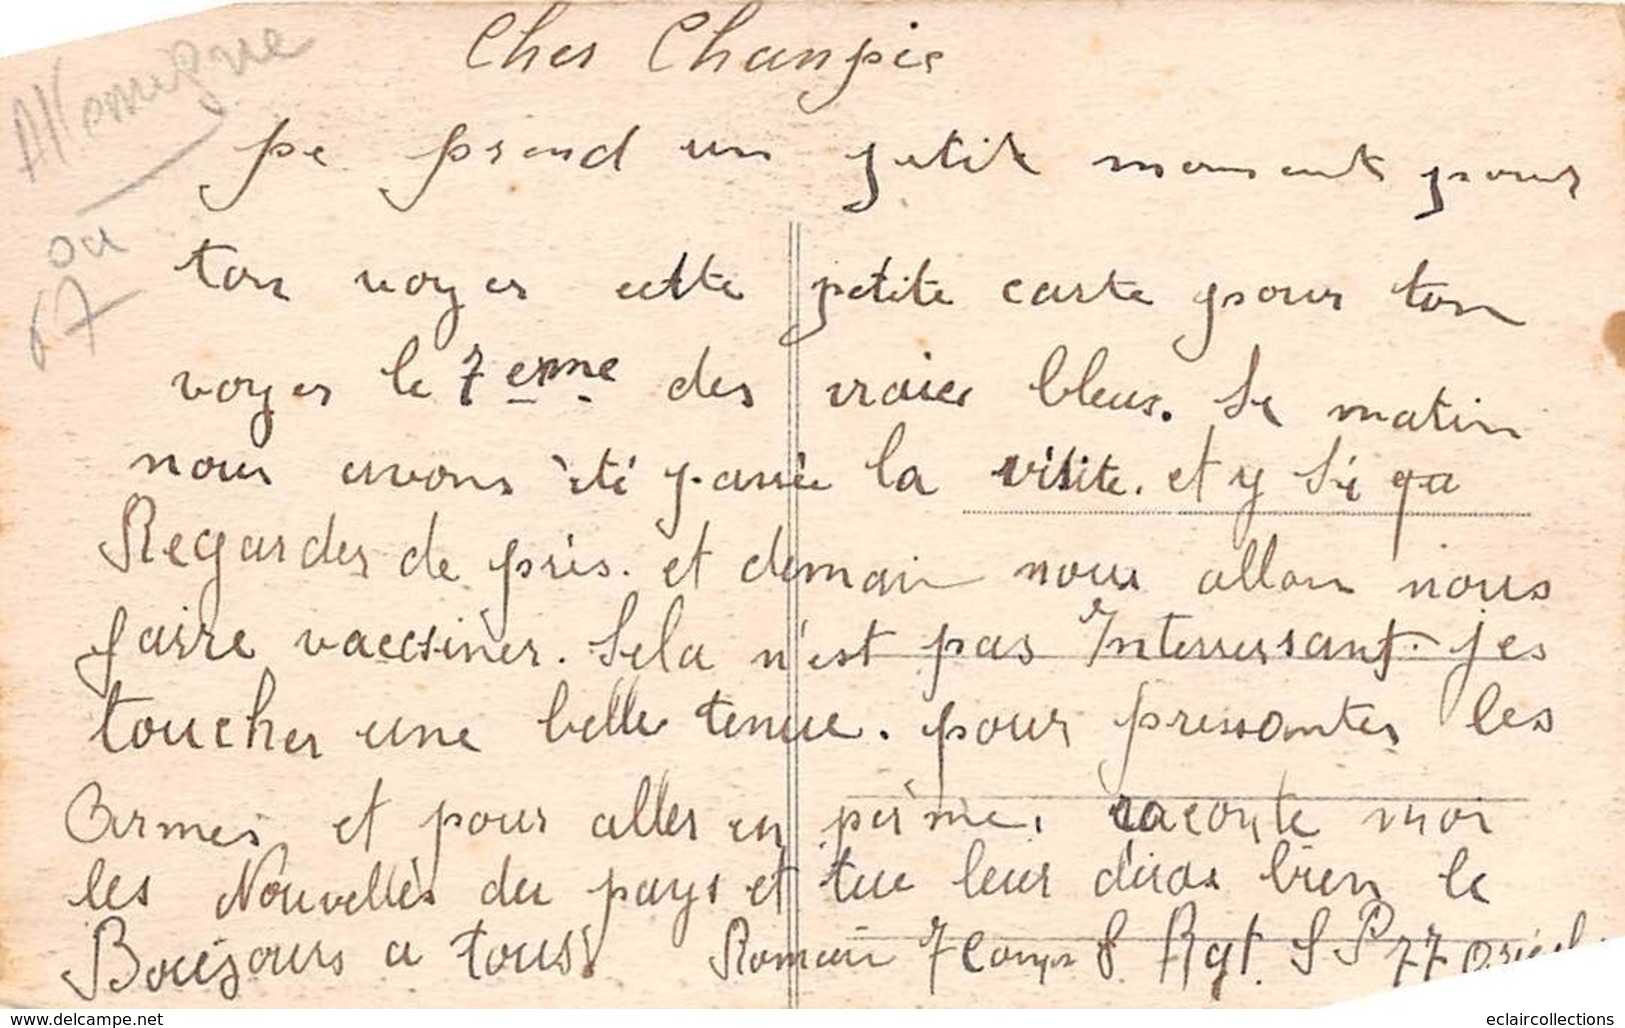 Allemagne
ou
67
Cher Chanpie
pe prend un petit moment pour
ton voyer cette petite carte pour ton
voyer le 7 eme des vraies bleus. Se matin
nous avons été passée la visite. et y si qu
Regarder de près. et demain nous allon nous
faire vaccsiner. Sela n'est pas Interressant. jes
toucher une belle tenue. pour pressanter les
Armes et pour aller en perme, raconte moi
les Nouvelles du pays et tue leur diras bien le
Boujours a tous. Romain 7 Comp 8. Rgt. S P 77
www.delcampe.net
eclaircollections